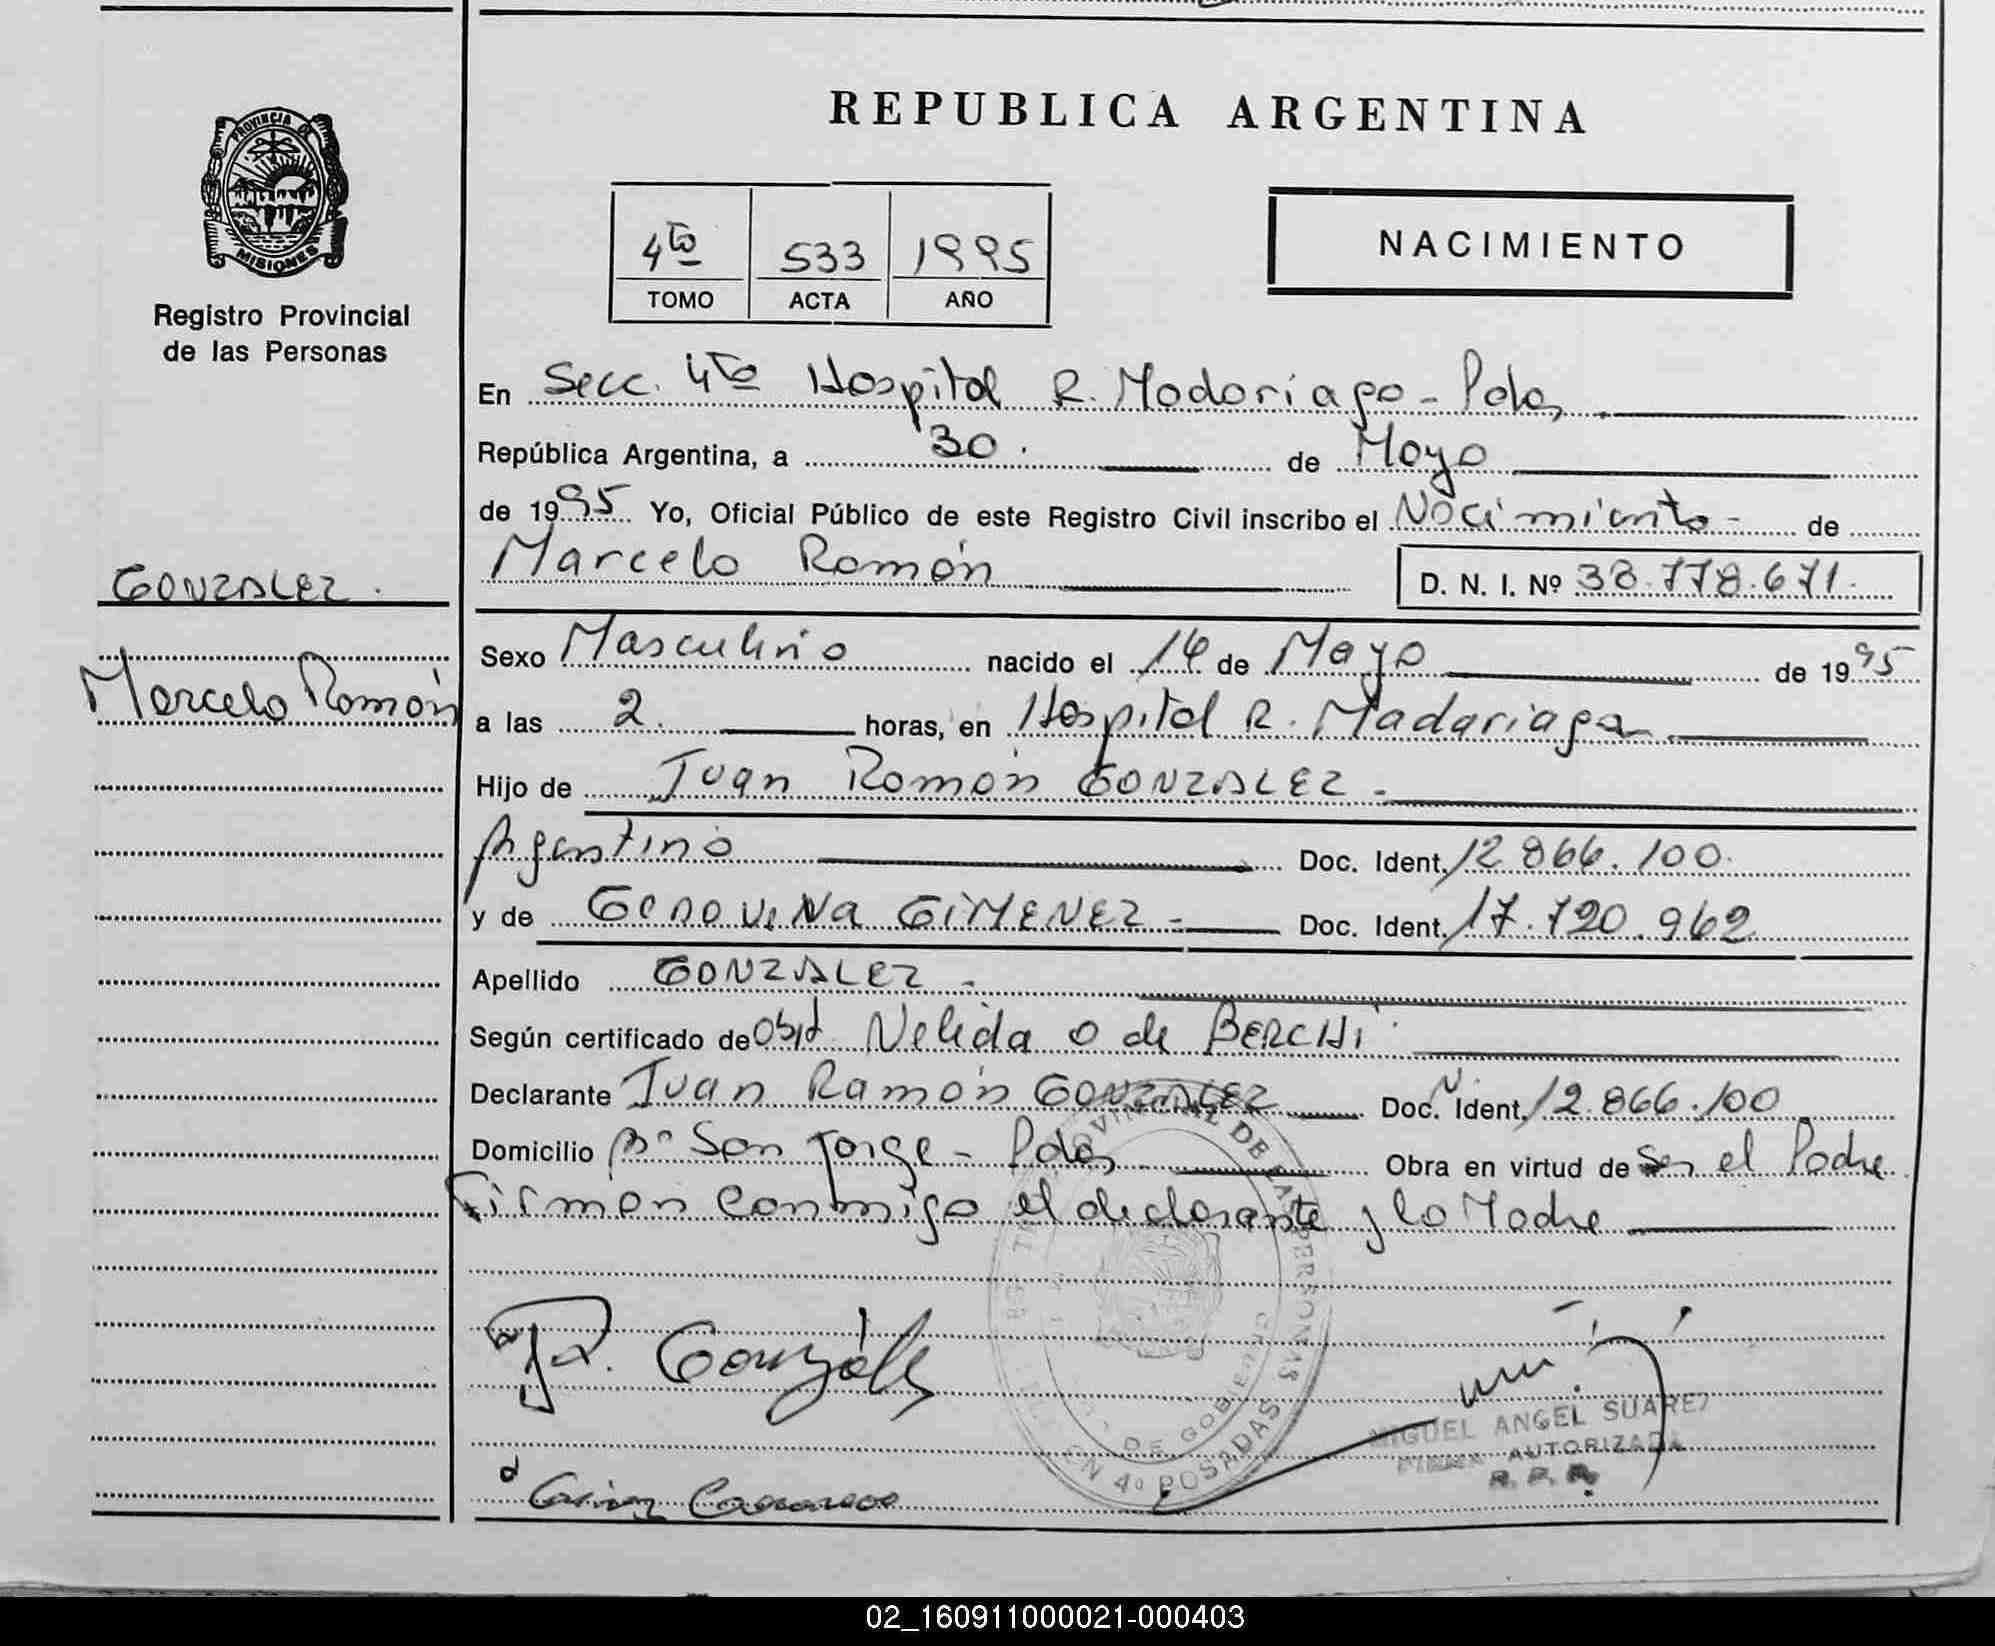 REPUBLICA ARGENTINA
PROVINCIA DE
MISIONES
Registro Provincial
de las Personas
4to 533 1995
TOMO ACTA AÑO
NACIMIENTO
En Secc. 4to Hospital R. Madariaga - Pdas
República Argentina, a 30 de Mayo
de 1995 Yo, Oficial Público de este Registro Civil inscribo el Nacimiento - de
Marcelo Ramón D. N. I. Nº 38.778.671.
GONZALEZ.
Marcelo Ramón
Sexo Masculino nacido el 14 de Mayo de 1995
a las 2. horas, en Hospital R. Madariaga
Hijo de Juan Ramón GONZALEZ -
Argentino Doc. Ident. 12.866.100.
y de GIMENEZ - Doc. Ident. 17.720.962
Apellido GONZALEZ -
Según certificado de Obst. Nelida O de BERCHI
Declarante Juan Ramón GONZALEZ Doc. Ident. 12.866.100
Domicilio Bº San Jorge - Pdas Obra en virtud de Ser el Padre
Firman conmigo el declarante y la Madre
J.R. González
MIGUEL ANGEL SUAREZ
FIRMA AUTORIZADA
R. P. P.
DE LAS PERSONAS
DE GOBIERNO
4º POSADAS
02_160911000021-000403